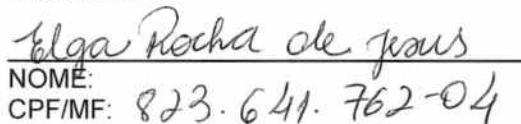 Elga Rocha de Jesus
NOME:
CPF/MF: 823.641.762-04